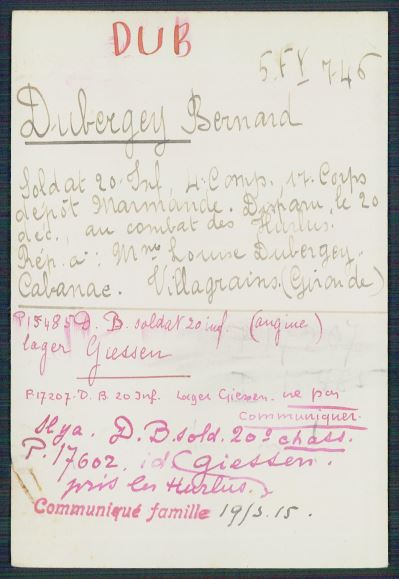 DUB
5.FX 746
Dubergey Bernard
Soldat 20 Inf, 4 Comp., 17 Corps
dépôt Marmande. Disparu, le 20
déc., au combat des Hurlus.
Rép. à: Mme Louise Dubergey.
Cabanac. Villagrains. (Gironde)
P15485 D. B. soldat 20 inf. (angine)
lager Giessen
P.17207. D. B. 20 Inf. Lager Giessen. ne pas
communiquer.
Il y a. D.B. sold. 20e chass.
P. 17602. id (Giessen.
pris les Hurlus.)
Communiqué famille 19/3.15.